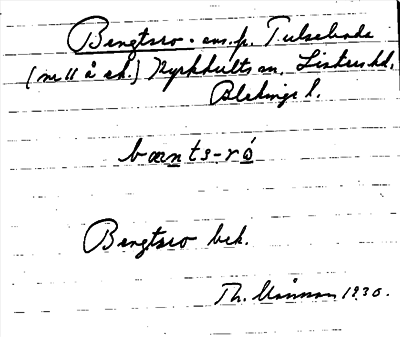 Bengtsro. ens.p. Tulseboda
(nr 11 å sk.) Kyrkhults sn. Listers hd.
Blekinge l.
bœnts-ró
Bengtsro bek.
Th. Månsson 1930.